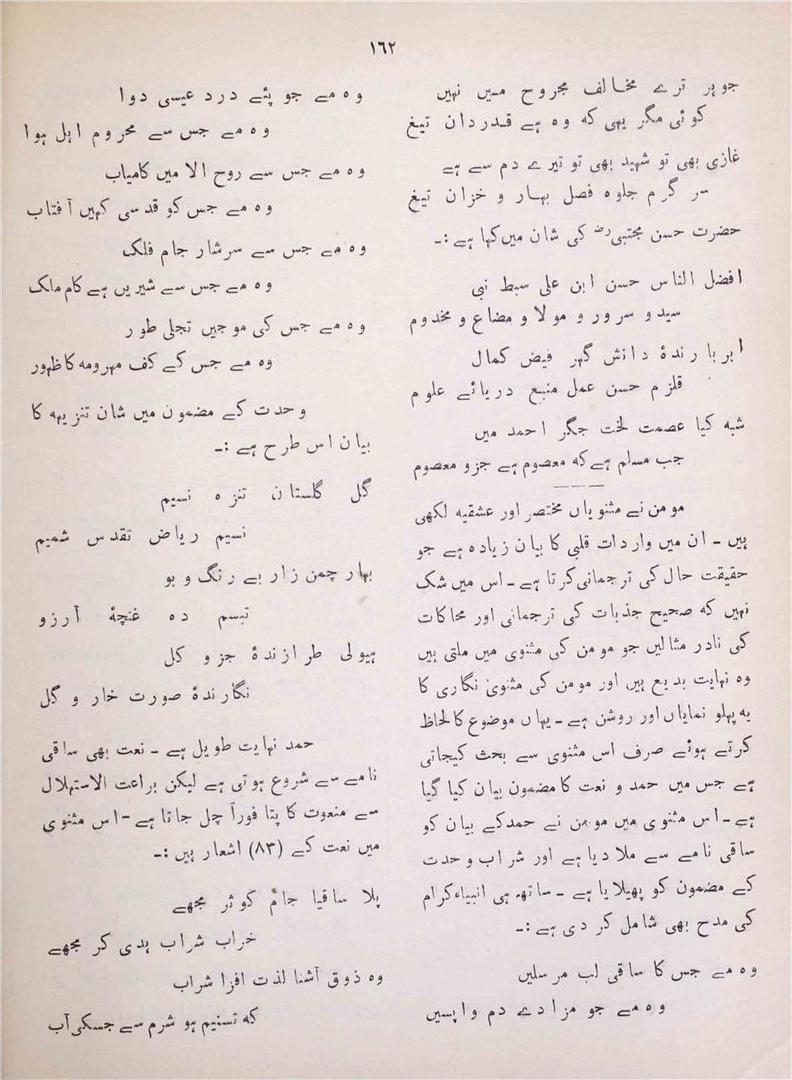 ۱٦۲
جوہر ترے مخالف مجروح میں نہیں
کوئی مگر یہی کہ وہ ہے قدردان تیغ
غازی بھی تو شہید بھی تو تیرے دم سے ہے
سر گرم جلوہ فصل بہار و خزان تیغ
حضرت حسن مجتبیٰ رضؓ کی شان میں کہا ہے :۔
افضل الناس حسن ابن علی سبط نبی
سید و سرور و مولا و مضاع و مخدوم
ابر بارندۂ دانش گہر فیض کمال
قلزم حسن عمل منبع دریائے علوم
شبہ کیا عصمت لخت جگر احمد میں
جب مسلم ہے کہ معصوم ہے جزو معصوم
مومن نے مثنویاں مختصر اور عشقیہ لکھی
ہیں ۔ ان میں واردات قلبی کا بیان زیادہ ہے جو
حقیقت حال کی ترجمانی کرتا ہے ۔ اس میں شک
نہیں کہ صحیح جذبات کی ترجمانی اور محاکات
کی نادر مثالیں جو مومن کی مثنوی میں ملتی ہیں
وہ نہایت بدیع ہیں اور مومن کی مثنوی نگاری کا
یہ پہلو نمایاں اور روشن ہے ۔ یہاں موضوع کا لحاظ
کرتے ہوئے صرف اس مثنوی سے بحث کیجاتی
ہے جس میں حمد و نعت کا مضمون بیان کیا گیا
ہے ۔ اس مثنوی میں مومن نے حمد کے بیان کو
ساقی نامے سے ملا دیا ہے اور شراب وحدت
کے مضمون کو پھیلایا ہے ۔ ساتھ ہی انبیاء کرام
کی مدح بھی شامل کر دی ہے :۔
وہ مے جس کا ساقی لب مرسلیں
وہ مے جو مزا دے دم واپسیں
وہ مے جو پئے درد عیسی دوا
وہ مے جس سے محروم اہل ہوا
وہ مے جس سے روح الا میں کامیاب
وہ مے جس کو قدسی کہیں آفتاب
وہ مے جس سے سرشار جام فلک
وہ مے جس سے شیریں ہے کام ملک
وہ مے جس کی موجیں تجلی طور
وہ مے جس کے کف مہر و مہ کا ظہور
وحدت کے مضمون میں شان تنزیہہ کا
بیان اس طرح ہے :۔
گل گلستان تنزہ نسیم
نسیم ریاض تقدس شمیم
بہار چمن زار بے رنگ و بو
تبسم دہ غنچۂ آرزو
ہیولی طرازندۂ جز و کل
نگارندۂ صورت خار و گل
حمد نہایت طویل ہے ۔ نعت بھی ساقی
نامے سے شروع ہوتی ہے لیکن براعت الاستہلال
سے منعوت کا پتا فوراً چل جاتا ہے ۔ اس مثنوی
میں نعت کے (۸۳) اشعار ہیں :۔
پلا ساقیا جام کوثر مجھے
خراب شراب ہدی کر مجھے
وہ ذوق آشنا لذت افزا شراب
کہ تسنیم ہو شرم سے جسکی آب